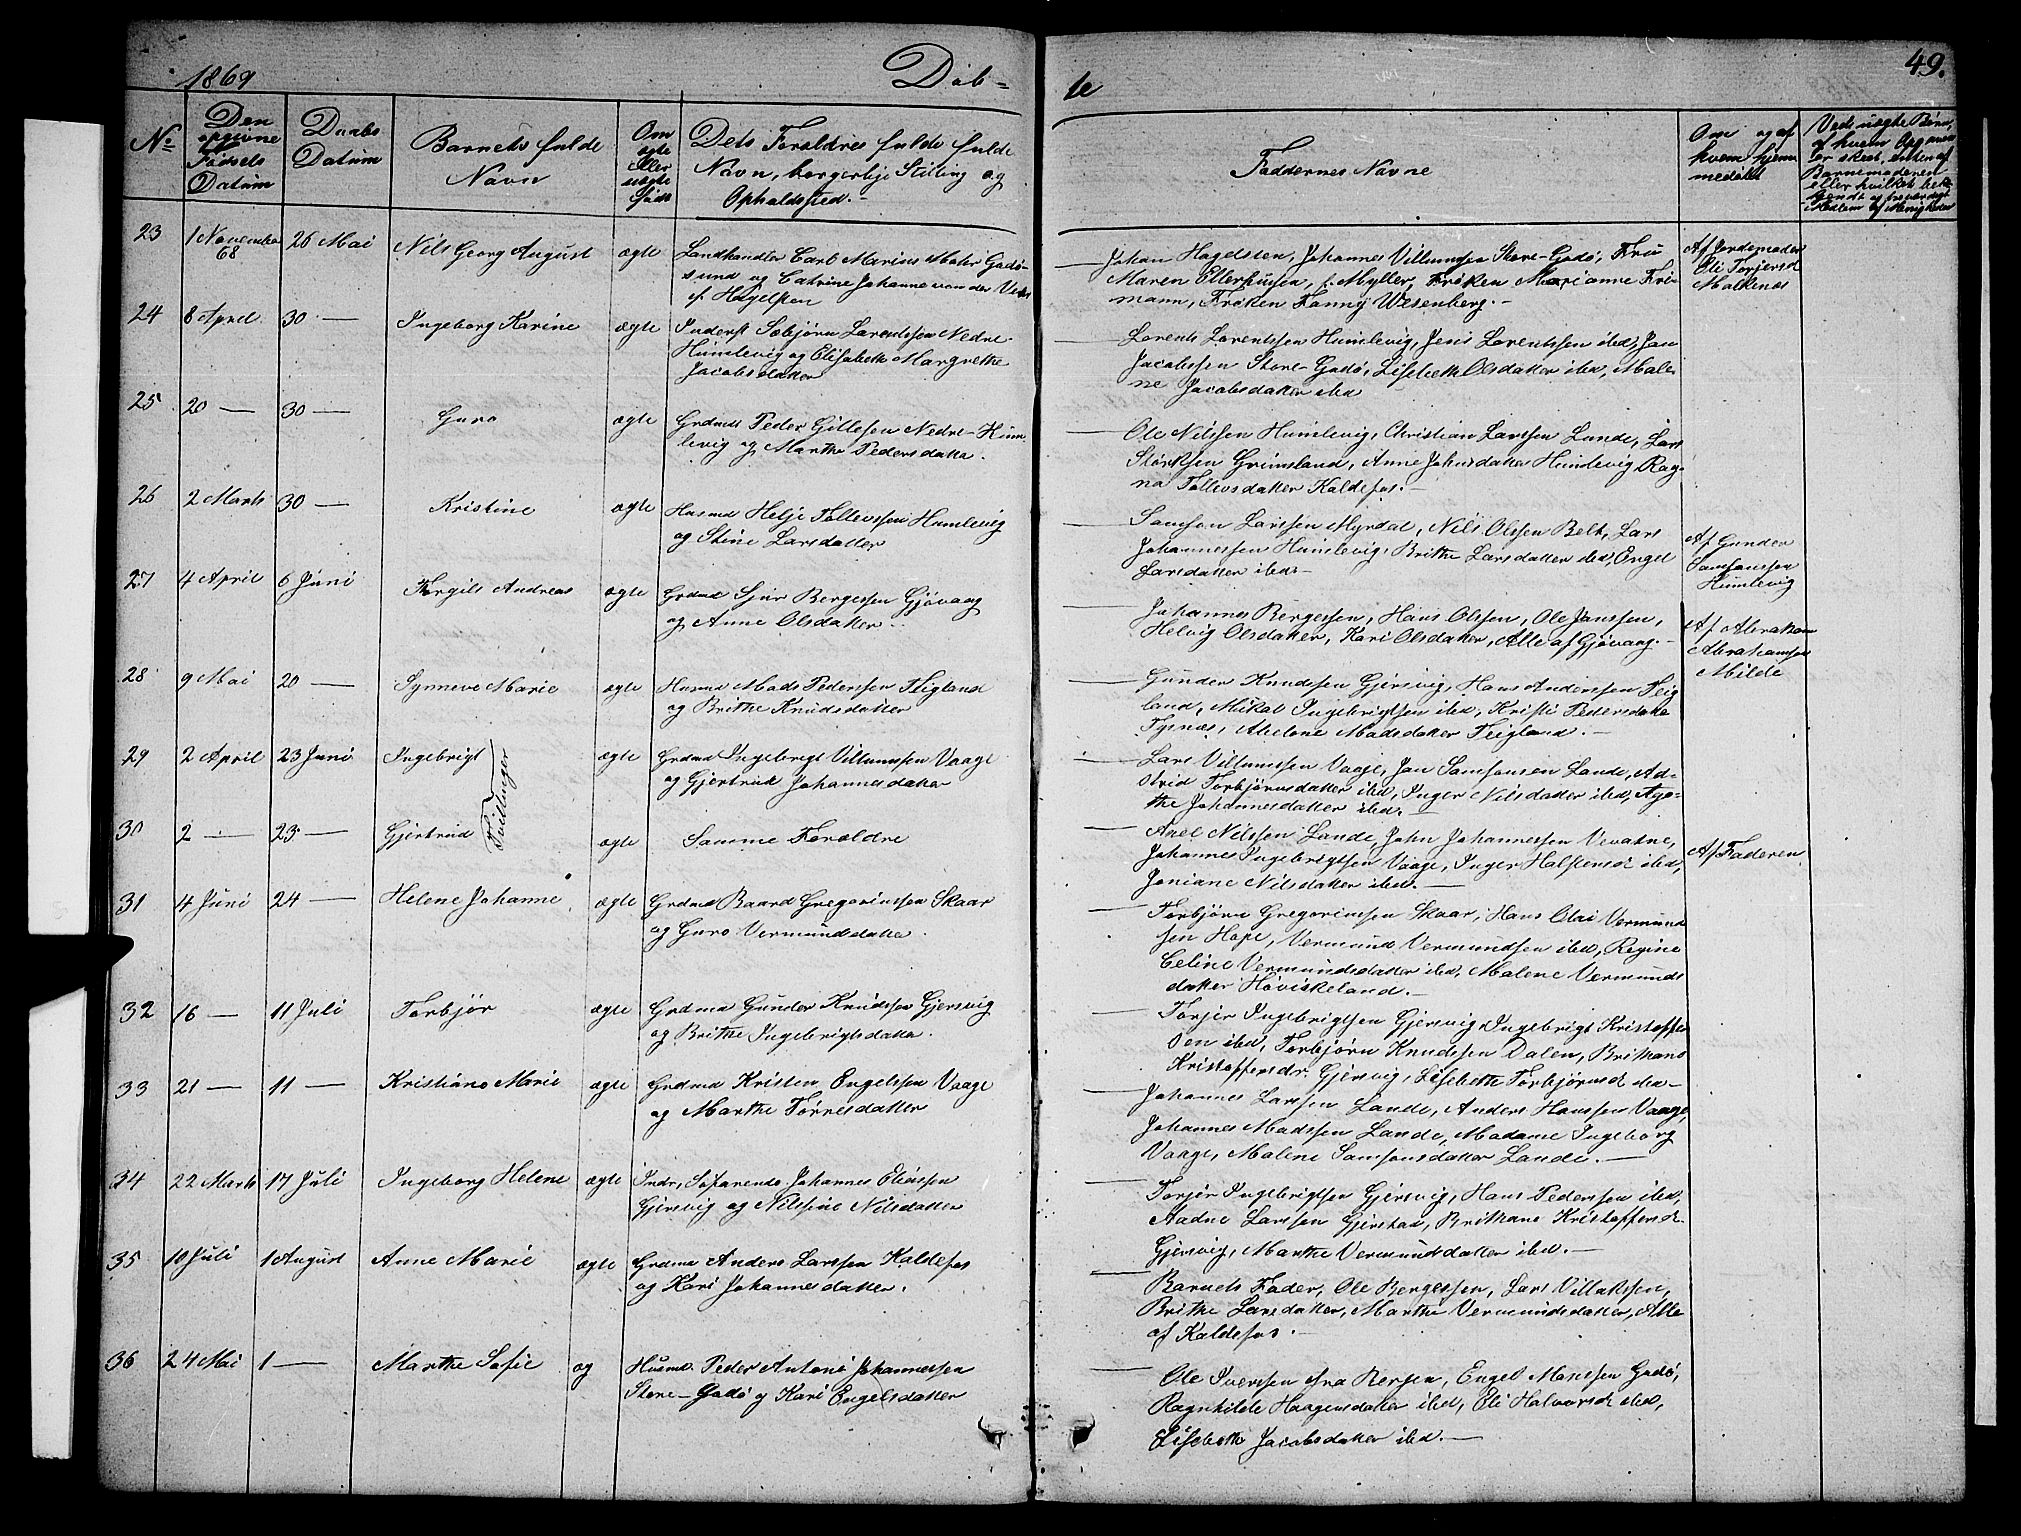 1869
Døb-
te
49.
No
Den opgivne Fødsels Datum
Daabs Datum
Barnets fulde Navn
Om ægte eller uægte født
Dets Forældres fulde fulde Navn, borgerlige Stilling og Opholdssted.-
Faddernes Navne
Om og af hvem hjemmedøbt
Ved uægte Børn, af hvem Opgaven er skeet, enten af Barnemoderen eller hvilket bekjendt og troværdigt Medlem af Menigheden
23 1 November 68 26 Mai Nils Georg August ægte Landhandler Carl Marius Mohr Godø-
sund og Catrine Johanne von der
f. Hagelsten
Johan Hagelsten, Johannes Villumsen Store-Godø, Fru
Maren Ellerhusen, f. Myller, Frøken Marianne Fri-
mann, Frøken Fanny Wesenberg.-
Af Jordemoder
Eli Torjersd
Malkenes
24 8 April 30 — Ingeborg Karine ægte Inderst Sæbjørn Larentssen Nedre-
Humlevig og Elisabeth Margrethe
Jacobsdatter
Lorents Lorentssen Humlevig, Jens Lorentssen ibd, Jan
Jacobssen Store-Godø, Lisebeth Olsdatter ibd, Male-
ne Jacobsdatter ibd
25 20 — 30 — Guro ægte Grdmd Peder Gillesen Nedre-Hum-
levig og Marthe Pedersdatter.
Ole Nilssen Humlevig, Christian Larssen Lunde, Lars
Størksen Grimsland, Anne Johnsdatter Humlevig, Rag-
na Tollevsdatter Kaldefos.-
26 2 Marts 30 — Kristine ægte Husmd Helje Tollevssen Humlevig
og Stine Larsdatter
Samson Larssen Myrdal, Nils Olssen Belt, Lars
Johannessen Humlevig, Brithe Larsdatter ibd, Engel
Larsdatter ibd-
Af Gunder
Samsonssen
Humlevig
27 4 April 6 Juni Torgils Andreas ægte Grdmd Sjur Bergessen Gjøvaag
og Anne Olsdatter.
Johannes Bergessen, Hans Olssen, Ole Janssen,
Helvig Olsdatter, Kari Olsdatter, Alle af Gjøvaag.-
Af Abraham
Abrahamsen
Milde
28 9 Mai 20 — Synneve Marie ægte Husmd Mads Pederssen Teigland
og Brithe Knudsdatter
Gunder Knudssen Gjersvig, Hans Anderssen Teig-
land, Mikal Ingebrigtsen ibd, Kristi Pedersdatter
Tysnes, Abelone Madsdatter Teigland.-
29 2 April 23 Juni Ingebrigt Tvillinger ægte Grdmd Ingebrigt Villumssen Vaage
og Gjertrud Johannesdatter
Lars Villumssen Vaage, Jan Samsonsen Lande, Ad-
strid Torbjørnsdatter ibd, Inger Nilsdatter ibd, Aga-
the Johannesdatter ibd.
30 2 — 23 — Gjertrud ægte Samme Forældre
Axel Nilssen Lande, John Johannessen Vevatne,
Johannes Ingebrigtsen Vaage, Inger Halstensd ibd,
Joniane Nilsdatter ibd.—
Af Faderen
31 4 Juni 24 — Helene Johanne ægte Grdmd Baard Gregoriussen Skaar
og Guro Vermundsdatter.
Torbjørn Gregoriussen Skaar, Hans Olai Vermund-
sen Hope, Vermund Vermundsen ibd, Regine
Celine Vermundsdatter ibd, Malene Vermunds-
datter Haviskeland.—
32 16 — 11 Juli Torbjør ægte Grdmd Gunder Knudssen Gjersvig
og Brithe Ingebrigtsdatter.
Torjer Ingebrigtsen Gjersvig, Ingebrigt Kristoffer-
sen ibd, Torbjørn Knudssen Dalen, Brithane
Kristoffersdr. Gjersvig, Lisebethe Torbjørnsd ibd—
33 21 — 11 — Kristiane Marie ægte Grdmd Kristen Engelssen Vaage
og Marthe Tørresdatter
Johannes Larssen Lande, Anders Hanssen Vaage,
Johannes Madssen Lande, Madame Ingeborg
Vaage, Malene Samsonsdatter Lande.—
34 22 Marts 17 Juli Ingeborg Helene ægte Indr, Søfarende Johannes Eliassen
Gjersvig og Nilssine Nilsdatter
Torjer Ingebrigtsen Gjersvig, Hans Pederssen ibd,
Aadne Larssen Gjerstad, Brithane Kristoffersd.
Gjersvig, Marthe Vermundsdatter ibd.—
35 10 Juli 1 August Anne Marie ægte Grdmd Anders Larssen Kaldefos
og Kari Johannesdatter.
Barnets Fader, Ole Bergessen, Lars Villakssen,
Brithe Larsdatter, Marthe Vermundsdatter, Alle
af Kaldefos.—
36 24 Mai 1 — Marthe Sofie og Husmd. Peder Antoni Johannessen
Store-Godø og Kari Engelsdatter
Ole Iverssen fra Bergen, Engel Monssen Godø,
Ragnhilde Haagensdatter ibd, Eli Halvorsd ibd,
Lisebethe Jacobsdatter ibd.—